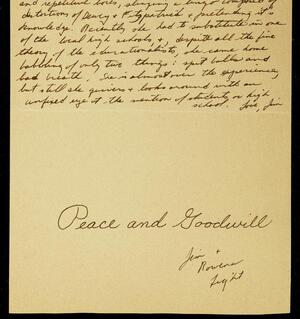 and repetent bores, slinging a lingo composed of
distortions of Henry & Fitzpatrick & pretending it's
knowledge. Recently she had to substitute in one
of the local high schools &, despite all the fine
theory of the educationalists, she came home
babbling of only two things: spit balls and
bad breath. She is almost over the experience,
but still she quivers & looks around with an
confused eye at the mention of students or high
school. Love, Jim
Peace and Goodwill
Jim &
Rowena
Light